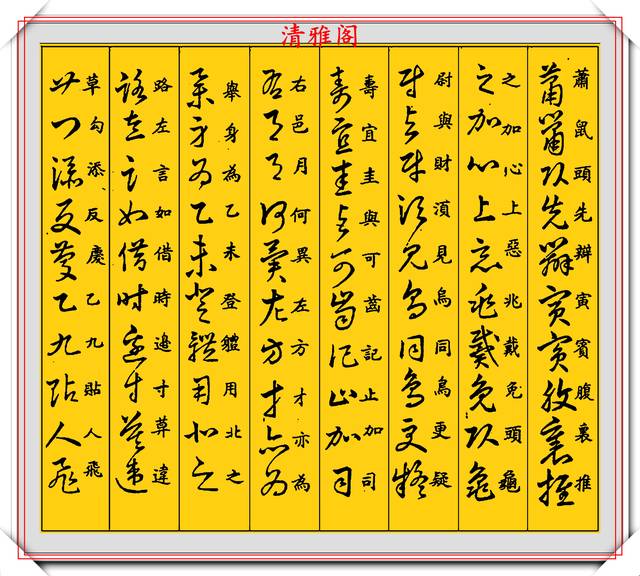 清雅阁
蕭鼠頭先辧寅賓腹裏推
之加心上惡兆戴免頭龜
尉與財湏見烏同鳥更疑
壽宜圭與可齒記止加司
右邑月何異左方才亦為
舉身為乙未登軆用北之
路左言如借時邊寸莫違
草勾添反慶乙九貼人飛